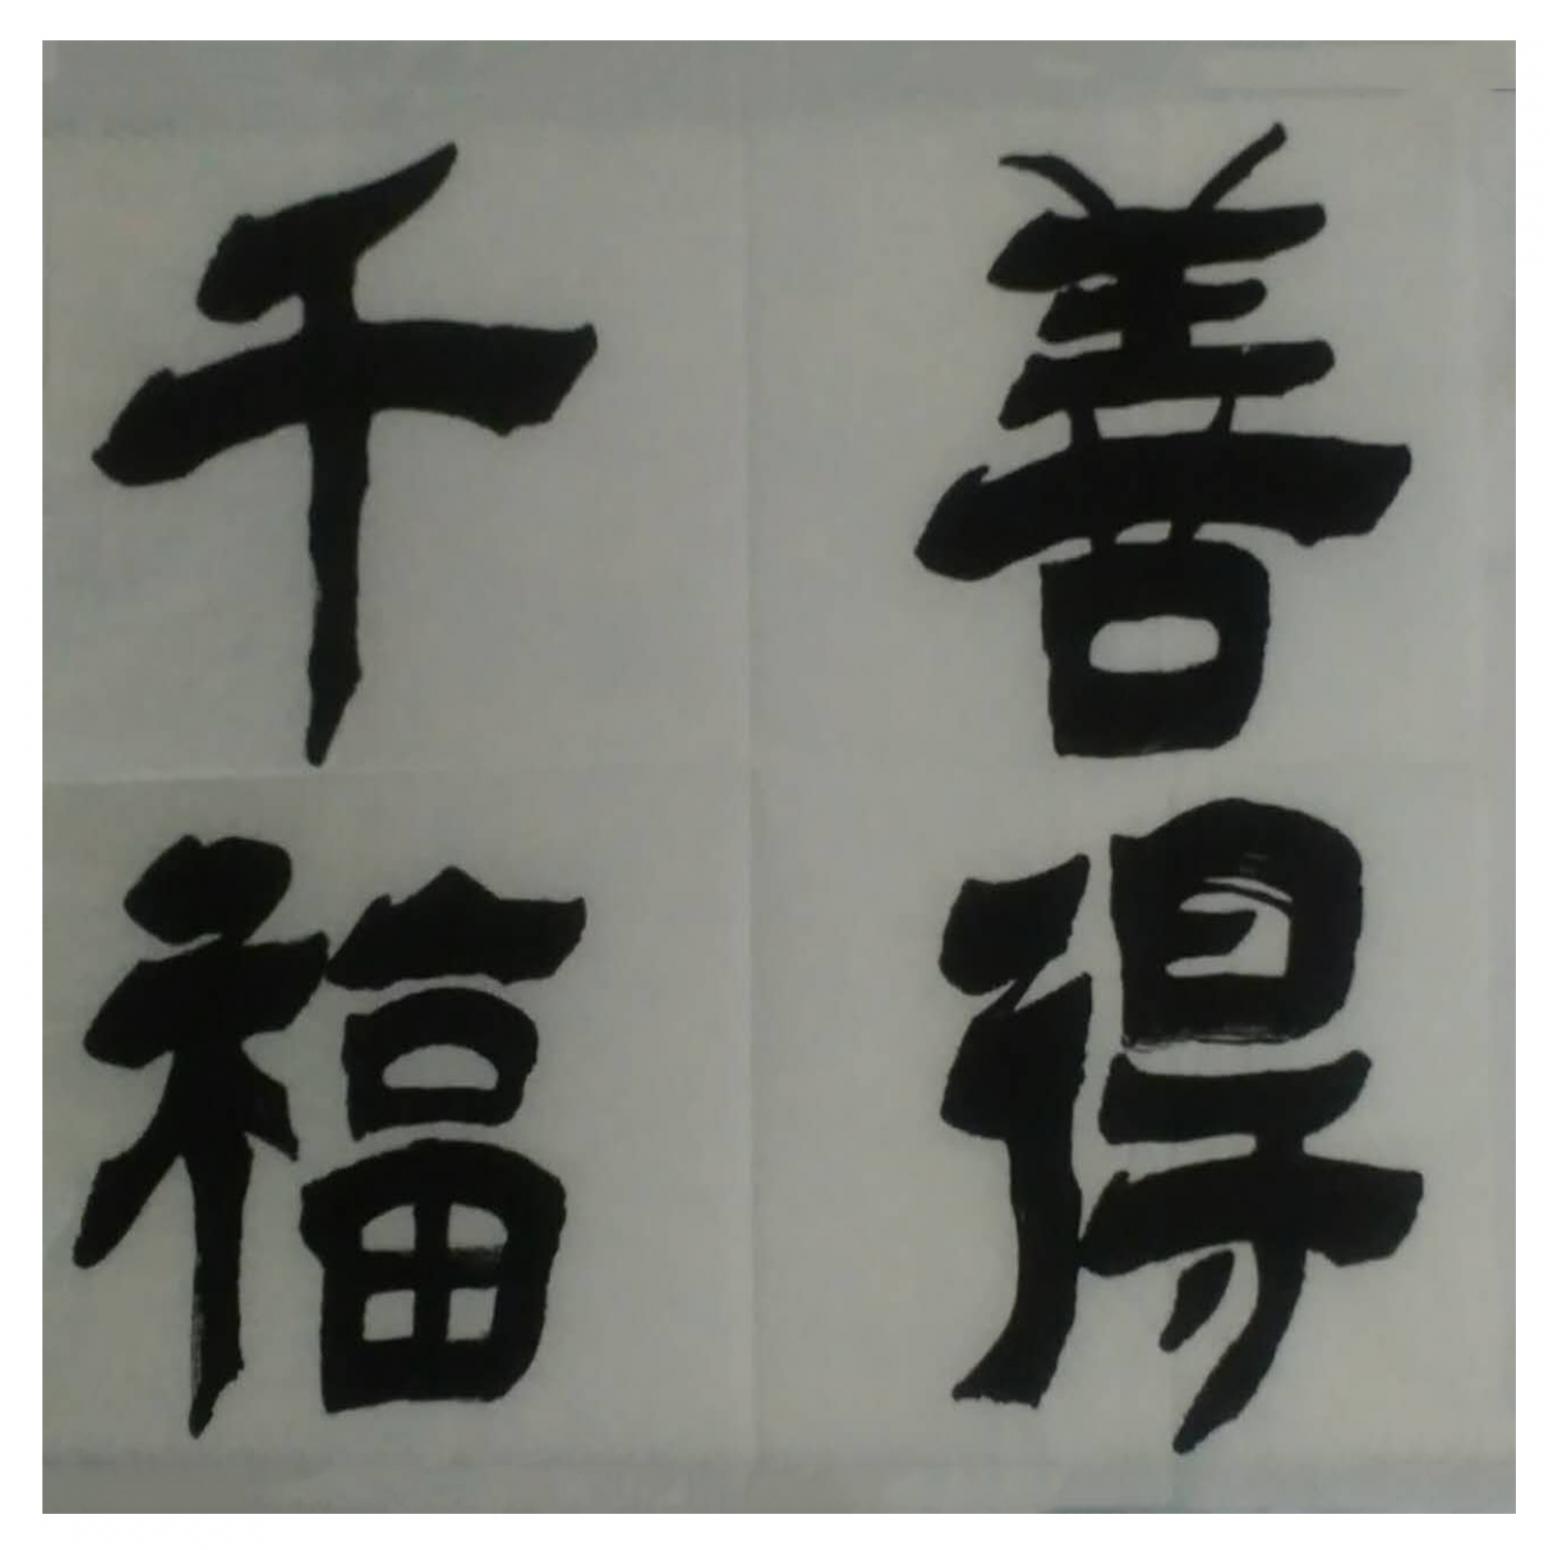 善得
千福